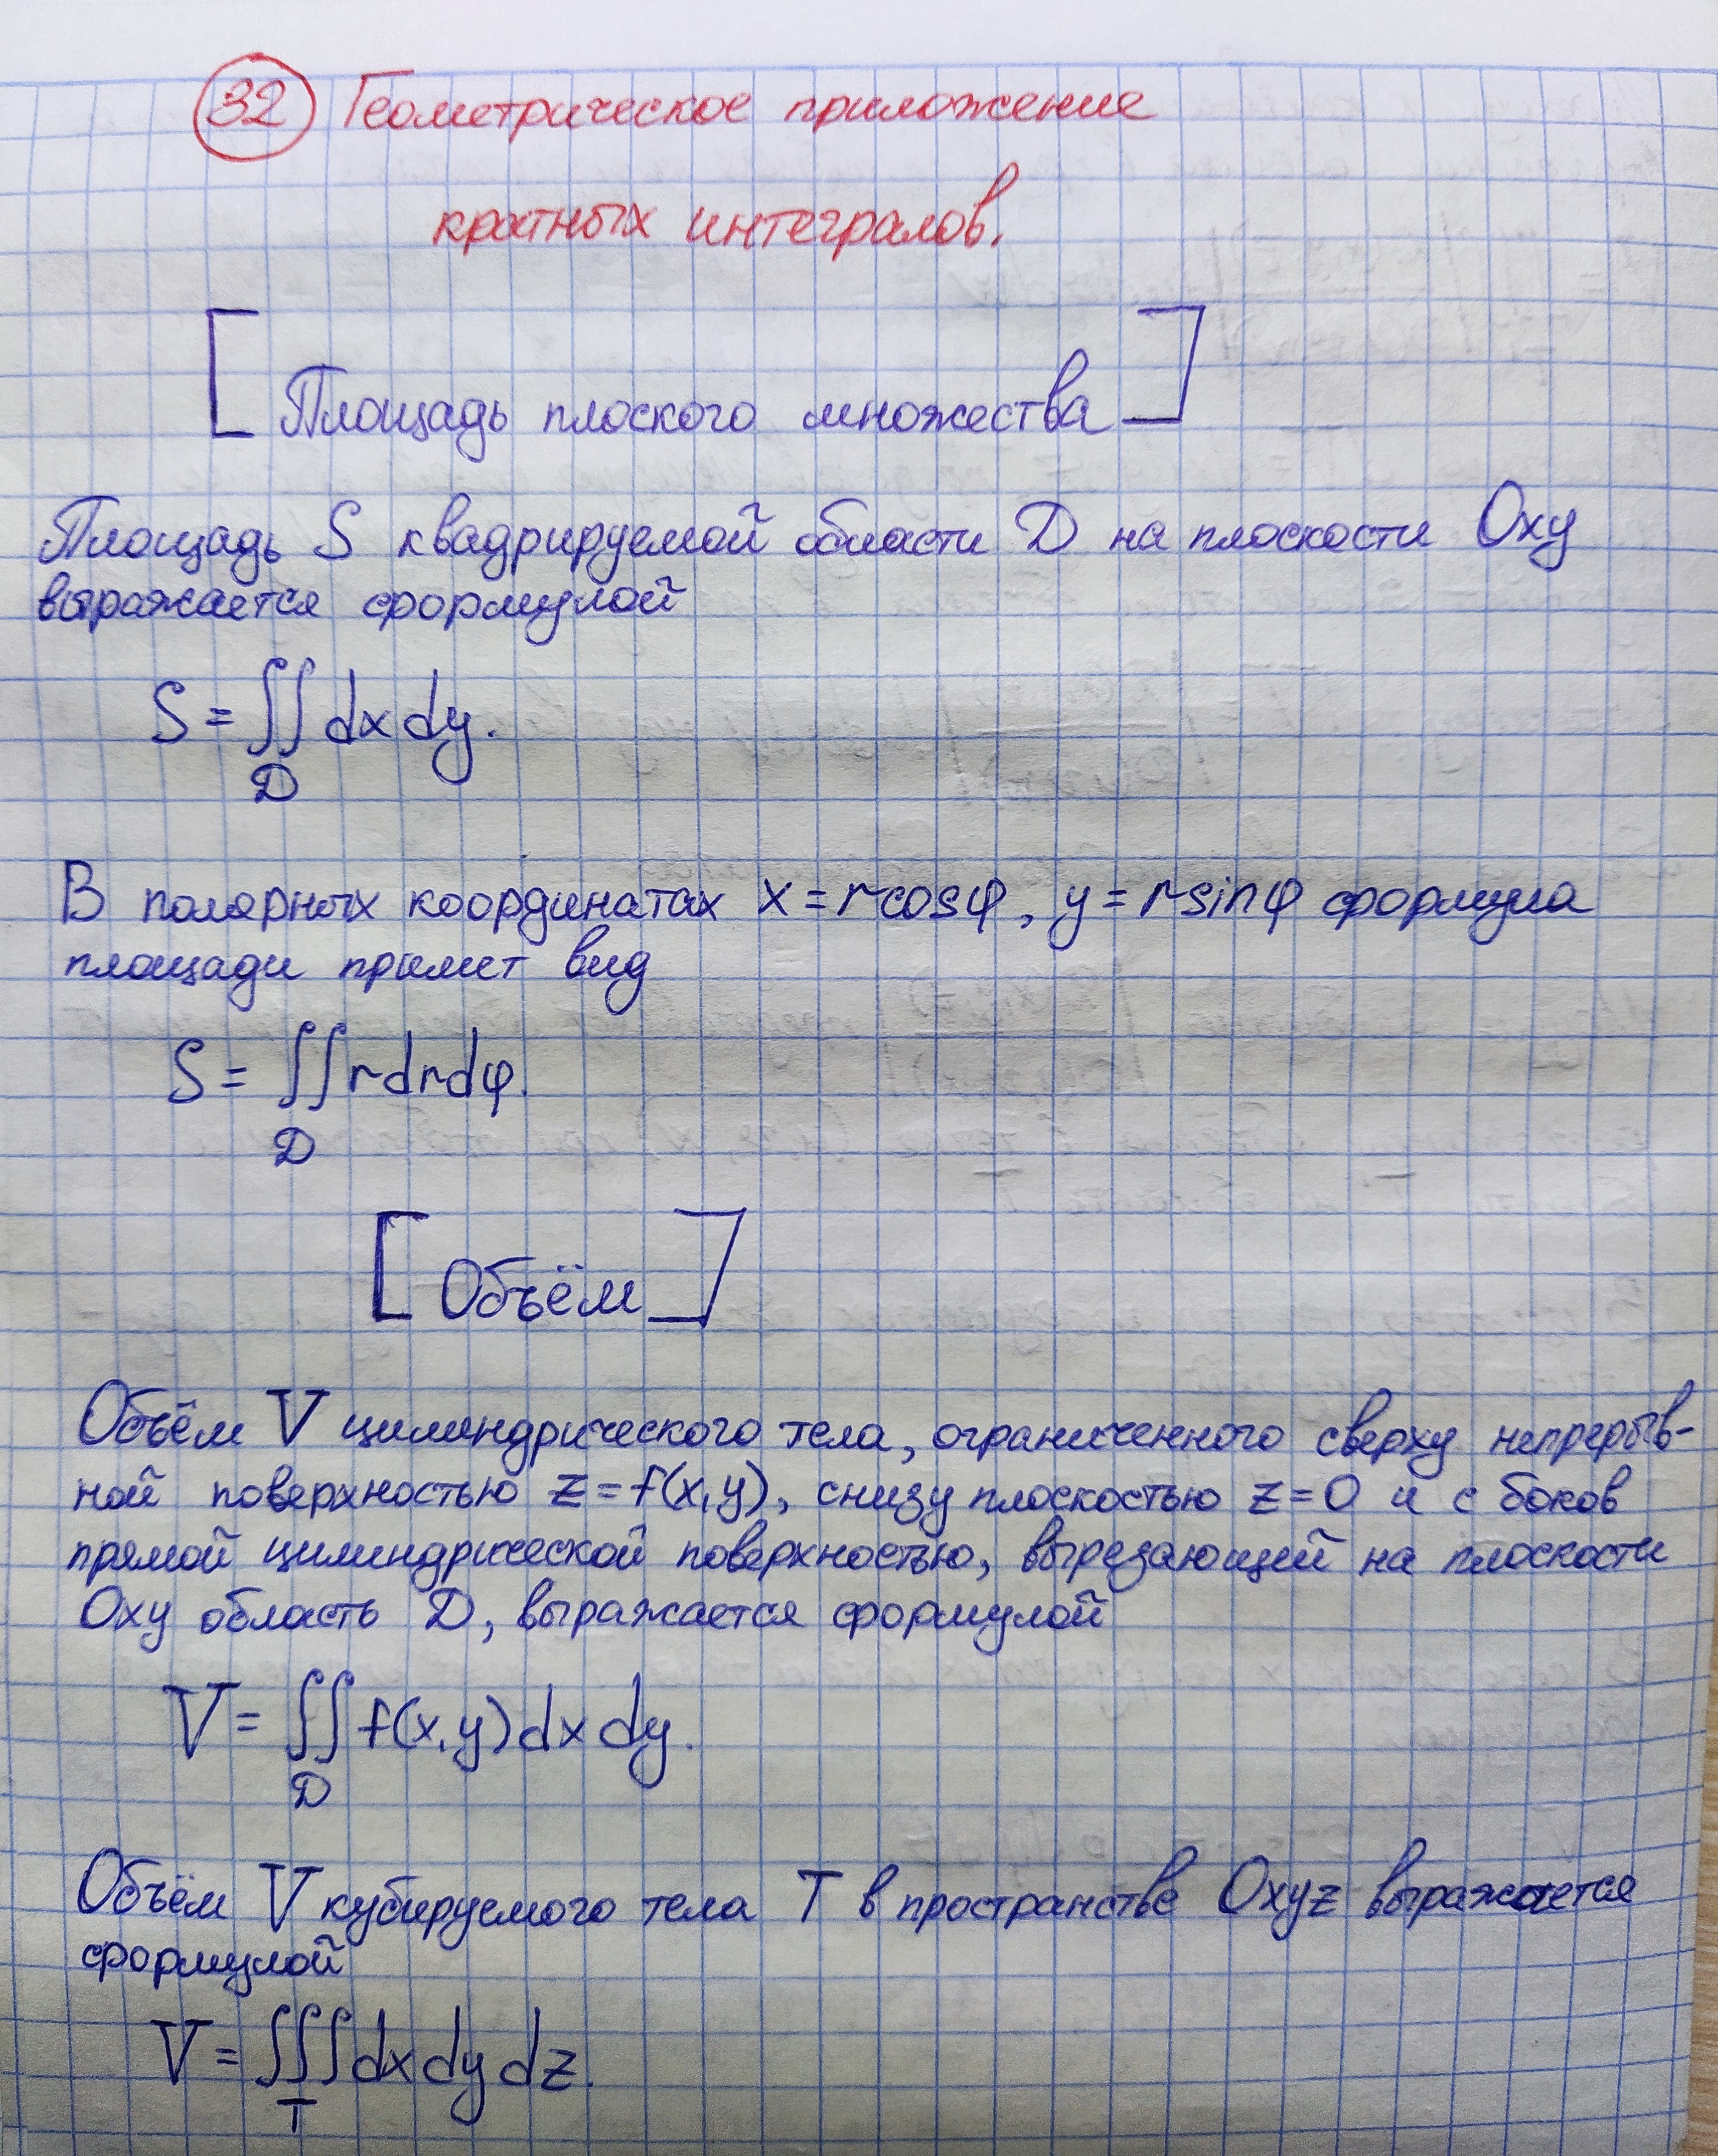 32 Геометрическое приложение
кратных интегралов.
[Площадь плоского множества]
Площадь S квадрируемой области D на плоскости Oxy
выражается формулой
S = ∬ dx dy.
D
В полярных координатах x = r cosφ, y = r sinφ формула
площади примет вид
S = ∬ r dr dφ.
D
[Объём]
Объём V цилиндрического тела, ограниченного сверху непрерыв-
ной поверхностью z = f(x,y), снизу плоскостью z = 0 и с боков
прямой цилиндрической поверхностью, вырезающей на плоскости
Oxy область D, выражается формулой
V = ∬ f(x,y) dx dy.
D
Объём V кубируемого тела T в пространстве Oxyz выражается
формулой
V = ∭ dx dy dz.
T